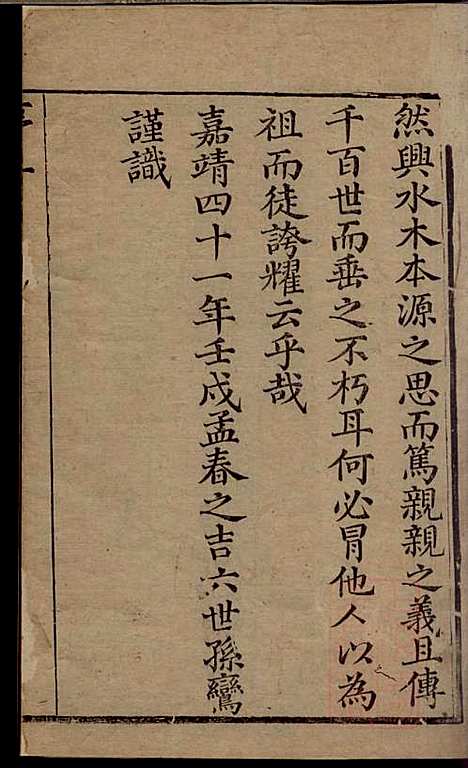 然興水木本源之思而篤親親之義且傳
千百世而垂之不朽耳何必冐他人以為
祖而徒誇耀云乎哉
嘉靖四十一年壬戍孟春之吉六世孫鸞
謹識